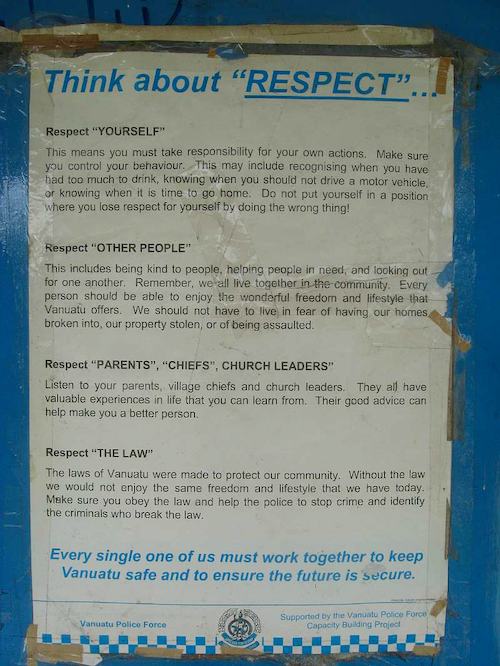 Think about “RESPECT”...
Respect “YOURSELF”
This means you must take responsibility for your own actions. Make sure
you control your behaviour. This may include recognising when you have
had too much to drink, knowing when you should not drive a motor vehicle,
or knowing when it is time to go home. Do not put yourself in a position
where you lose respect for yourself by doing the wrong thing!
Respect “OTHER PEOPLE”
This includes being kind to people, helping people in need, and looking out
for one another. Remember, we all live together in the community. Every
person should be able to enjoy the wonderful freedom and lifestyle that
Vanuatu offers. We should not have to live in fear of having our homes
broken into, our property stolen, or of being assaulted.
Respect “PARENTS”, “CHIEFS”, CHURCH LEADERS”
Listen to your parents, village chiefs and church leaders. They all have
valuable experiences in life that you can learn from. Their good advice can
help make you a better person.
Respect “THE LAW”
The laws of Vanuatu were made to protect our community. Without the law
we would not enjoy the same freedom and lifestyle that we have today.
Make sure you obey the law and help the police to stop crime and identify
the criminals who break the law.
Every single one of us must work together to keep
Vanuatu safe and to ensure the future is secure.
Vanuatu Police Force
Supported by the Vanuatu Police Force
Capacity Building Project